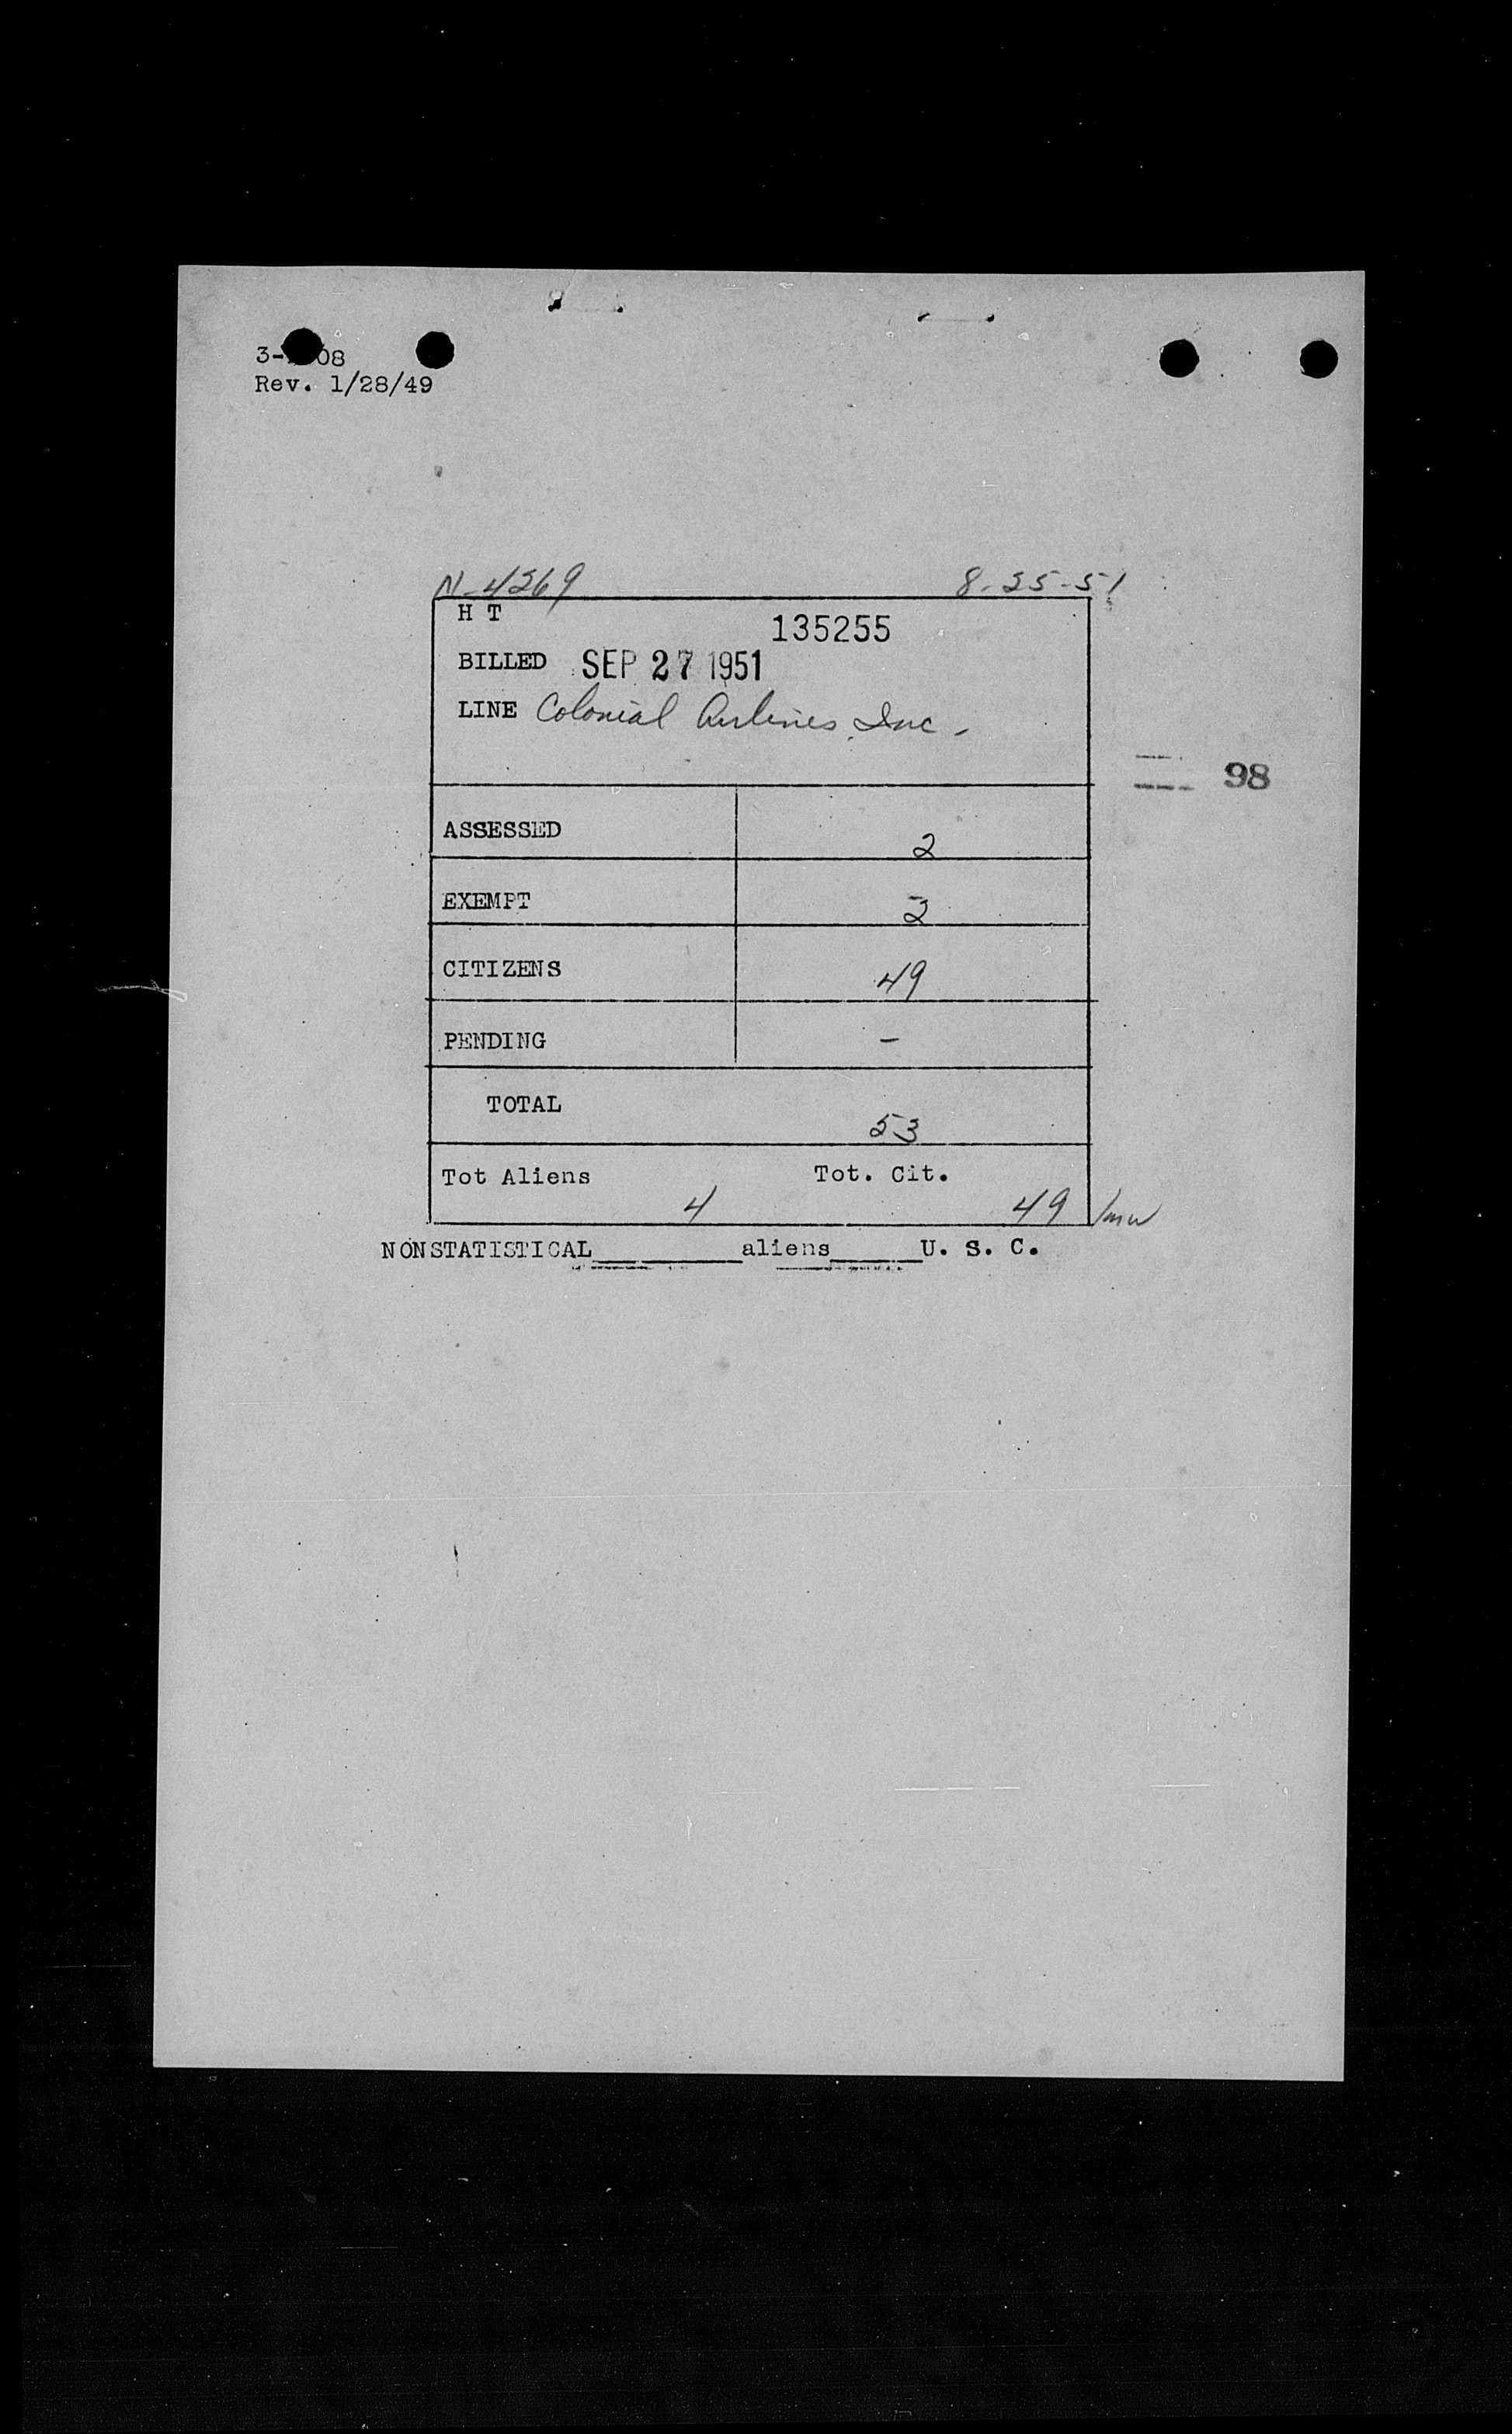 3-08
Rev. 1/28/49
N-4269 8-25-51
H T
135255
BILLED SEP 27 1951
LINE Colonial Airlines, Inc.
98
ASSESSED 2
EXEMPT 2
CITIZENS 49
PENDING -
TOTAL 53
Tot Aliens Tot. Cit.
4 49
NONSTATISTICAL________aliens_____U. S. C.